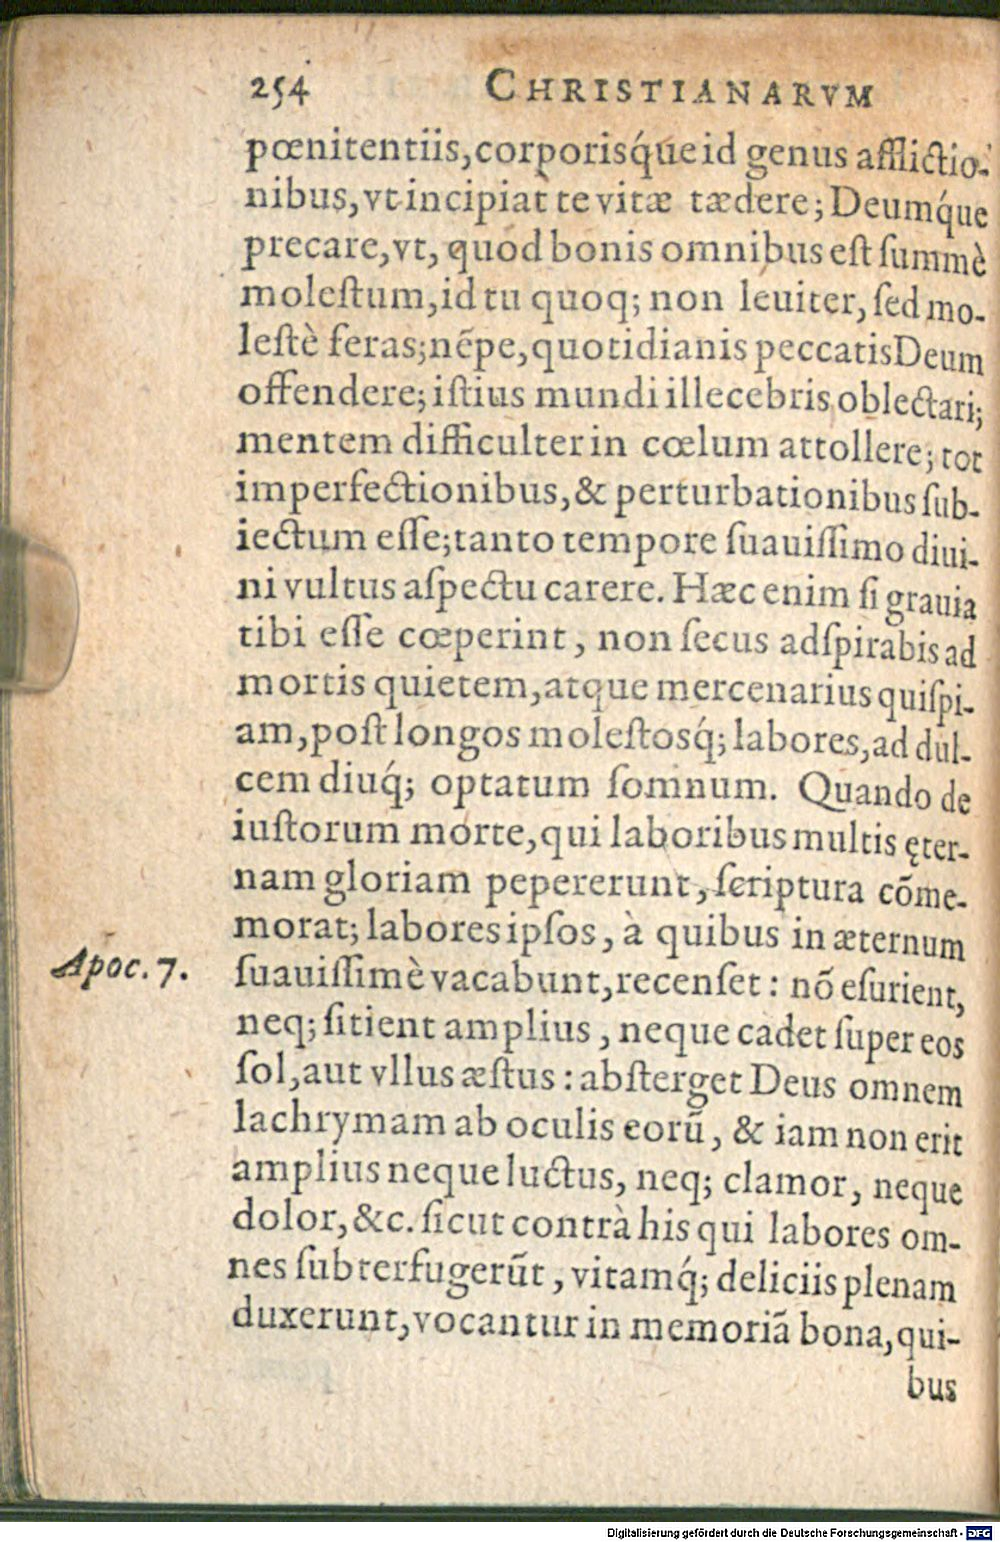 254 CHRISTIANARVM
pœnitentiis, corporisq́ue id genus afflictio-
nibus, vt incipiat te vitæ tædere; Deumq́ue
precare, vt, quod bonis omnibus est ſummè
moleſtum, id tu quoq; non leuiter, ſed mo-
leſtè feras; nẽpe, quotidianis peccatis Deum
offendere; iſtius mundi illecebris oblectari;
mentem difficulter in cœlum attollere; tot
imperfectionibus, & perturbationibus ſub-
iectum eſſe; tanto tempore ſuauiſſimo diui-
ni vultus aſpectu carere. Hæc enim ſi grauia
tibi eſſe cœperint, non ſecus adſpirabis ad
mortis quietem, atque mercenarius quiſpi-
am, poſt longos moleſtosq́; labores, ad dul-
cem diuq́; optatum ſomnum. Quando de
iuſtorum morte, qui laboribus multis ęter-
nam gloriam pepererunt, ſcriptura cõme-
morat; labores ipſos, à quibus in æternum
Apoc. 7. ſuauiſſimè vacabunt, recenſet: nõ eſurient,
neq; ſitient amplius, neque cadet ſuper eos
ſol, aut vllus æſtus: abſterget Deus omnem
lachrymam ab oculis eorũ, & iam non erit
amplius neque luctus, neq; clamor, neque
dolor, &c. ſicut contrà his qui labores om-
nes ſubterfugerũt, vitamq́; deliciis plenam
duxerunt, vocantur in memoriã bona, qui-
bus
Digitalisierung gefördert durch die Deutsche Forschungsgemeinschaft - DFG